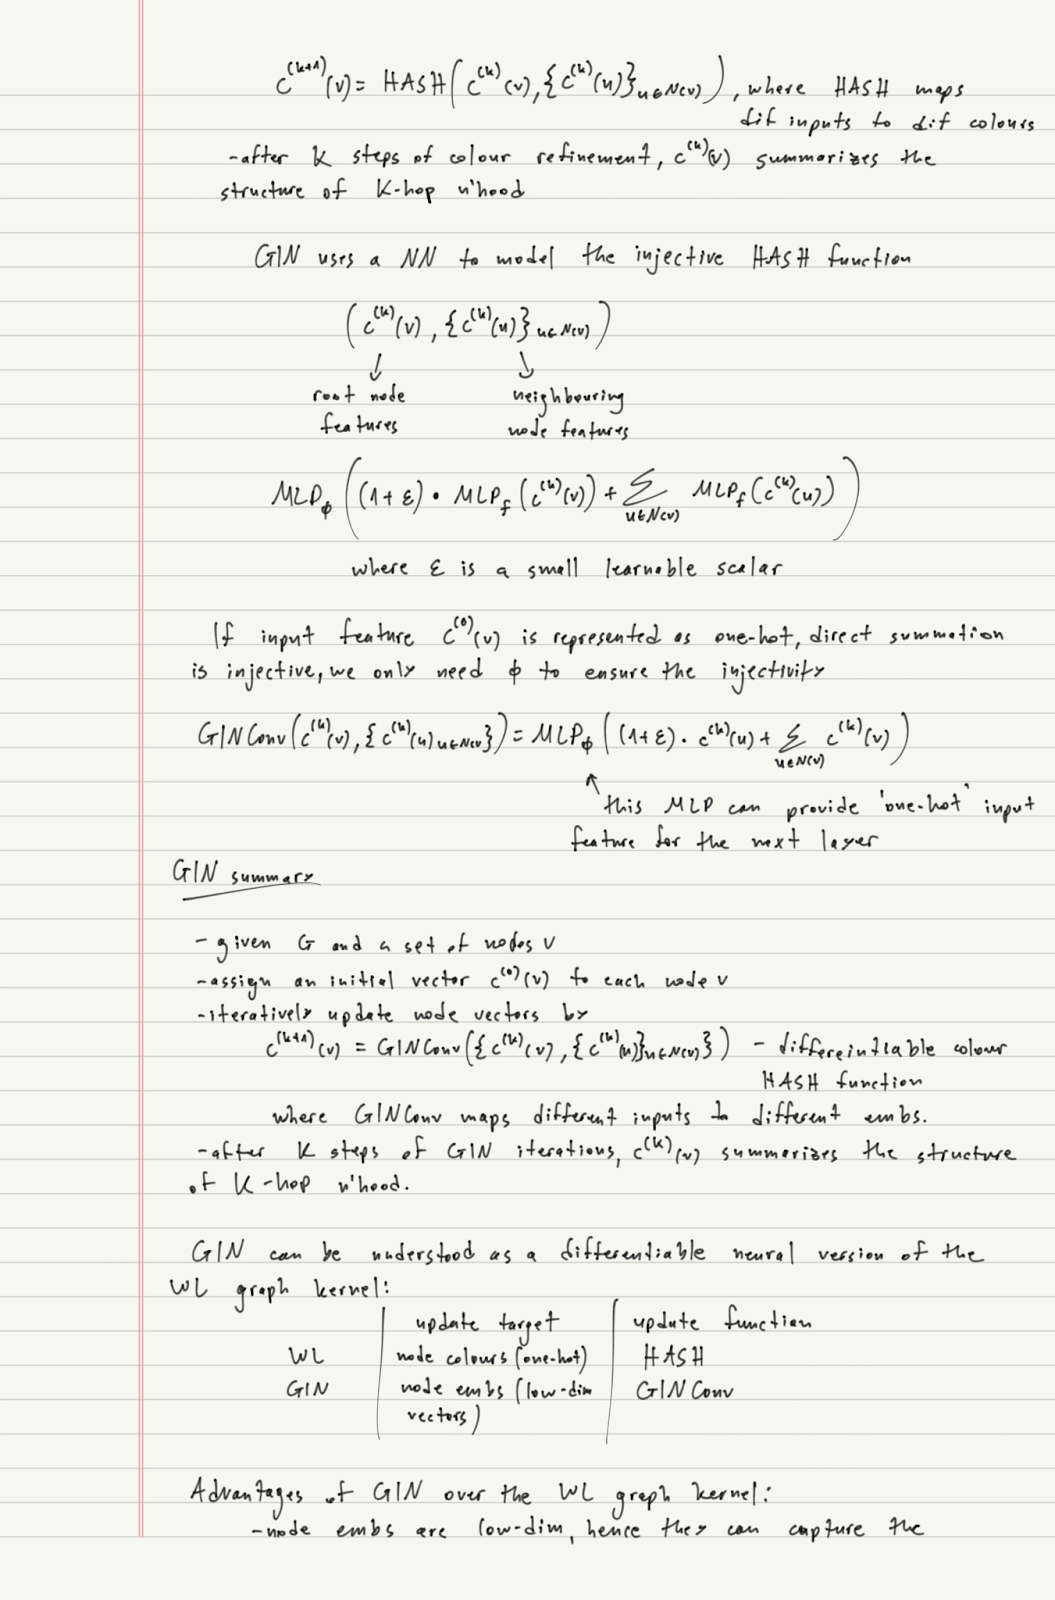 c^(k+1)(v) = HASH(c^(k)(v), {c^(k)(u)}_{u∈N(v)}), where HASH maps
dif inputs to dif colours
-after K steps of colour refinement, c^(k)(v) summarizes the
structure of K-hop n'hood
GIN uses a NN to model the injective HASH function
(c^(k)(v), {c^(k)(u)}_{u∈N(v)})
↓ ↓
root node neighbouring
features node features
MLP_ϕ((1+ε)·MLP_f(c^(k)(v)) + Σ_{u∈N(v)} MLP_f(c^(k)(u)))
where ε is a small learnable scalar
If input feature c^(0)(v) is represented as one-hot, direct summation
is injective, we only need ϕ to ensure the injectivity
GINConv(c^(k)(v), {c^(k)(u)_{u∈N(v)}}) = MLP_ϕ((1+ε)·c^(k)(u) + Σ_{u∈N(v)} c^(k)(v))
↑ this MLP can provide 'one-hot' input
feature for the next layer
GIN summary
- given G and a set of nodes V
-assign an initial vector c^(0)(v) to each node v
-iteratively update node vectors by
c^(k+1)(v) = GINConv({c^(k)(v), {c^(k)(u)}_{u∈N(v)}}) - differeintiable colour
HASH function
where GINConv maps different inputs to different embs.
-after K steps of GIN iterations, c^(k)(v) summarizes the structure
of K-hop n'hood.
GIN can be understood as a differentiable neural version of the
WL graph kernel:
update target update function
WL node colours (one-hot) HASH
GIN node embs (low-dim GINConv
vectors)
Advantages of GIN over the WL graph kernel:
-node embs are low-dim, hence they can capture the